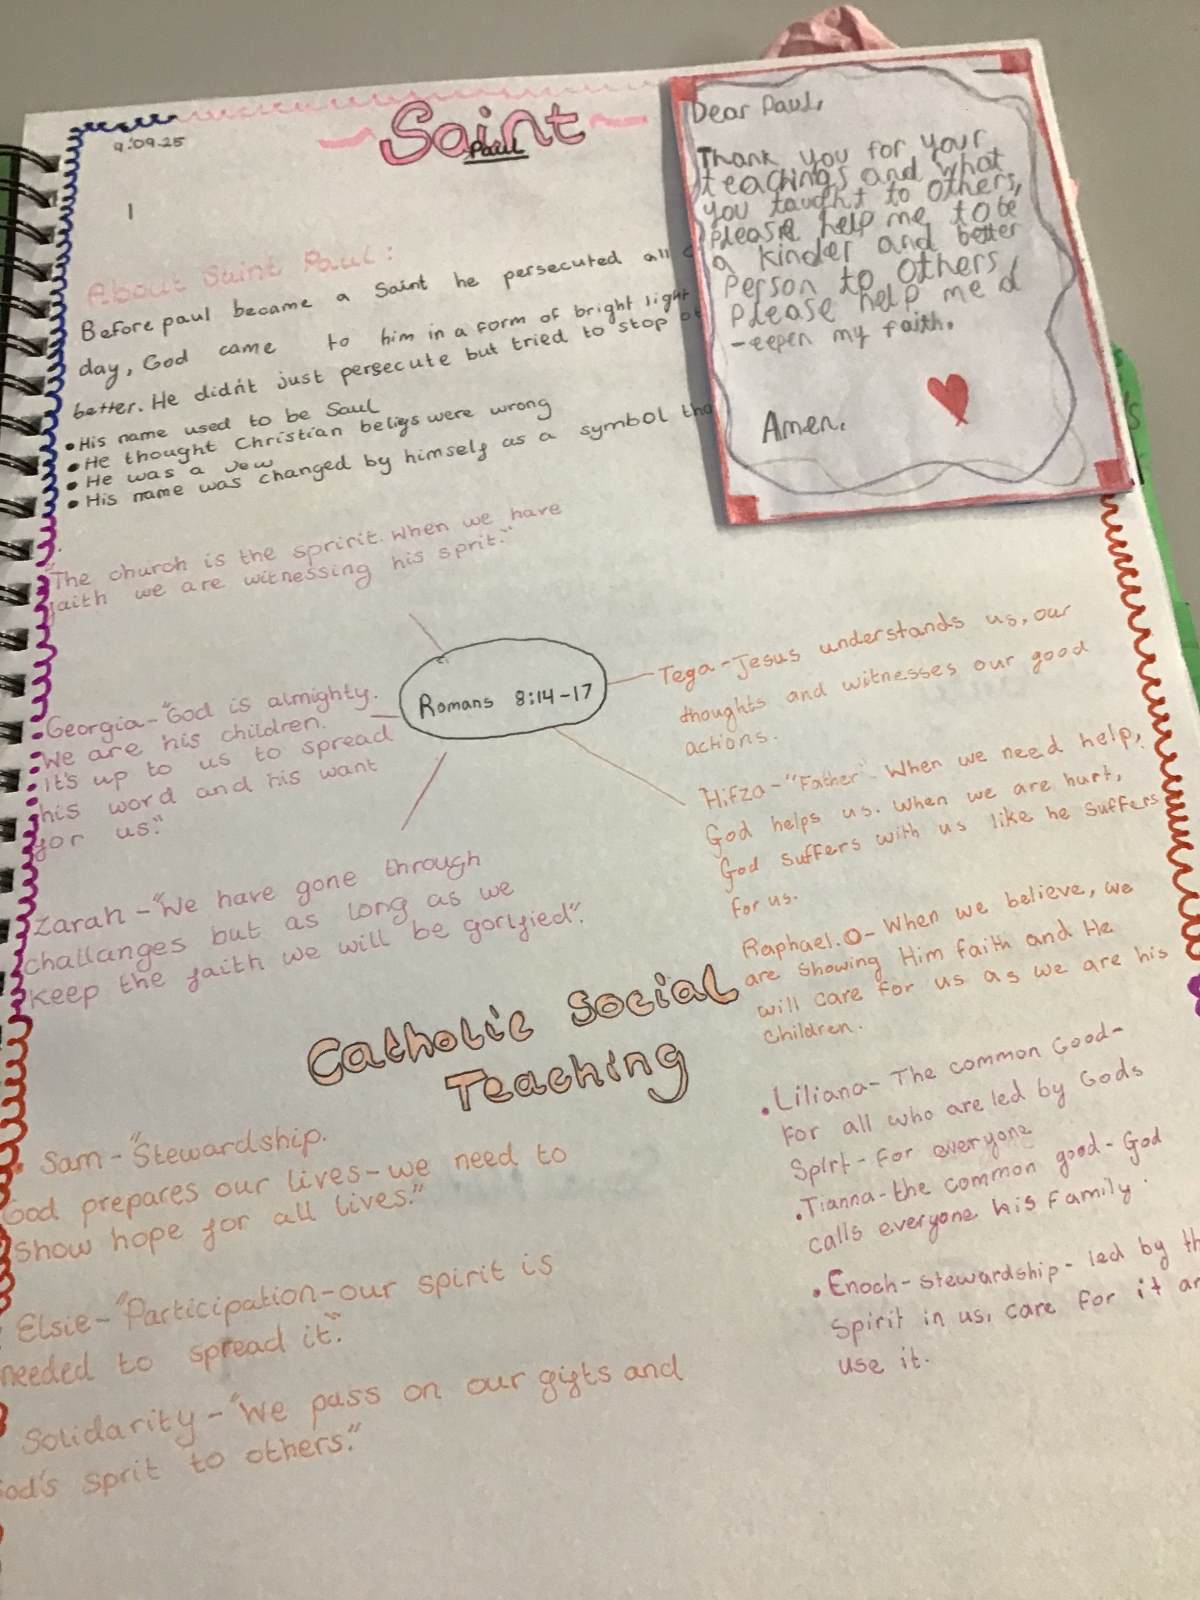 9.09.25
Saint
Paul
1
About Saint Paul:
Before paul became a Saint he persecuted all
day, God came to him in a form of bright light
better. He didn't just persecute but tried to stop
• His name used to be Saul
• He thought Christian beliefs were wrong
• He was a Jew
• His name was changed by himself as a symbol
Dear Paul,
Thank you for your
teachings and what
you taught to others,
please help me to be
a kinder and better
person to others,
please help me d
-eepen my faith.
Amen.
"The church is the spririt. When we have
faith we are witnessing his sprit."
Romans 8:14-17
• Georgia-"God is almighty.
We are his children.
It's up to us to spread
his word and his want
for us."
Zarah-"We have gone through
challanges but as long as we
keep the faith we will be gorlfied".
Tega-Jesus understands us, our
thoughts and witnesses our good
actions.
Hifza-"Father" When we need help,
God helps us. When we are hurt,
God suffers with us like he suffers
for us.
Raphael.O- When we believe, we
are showing Him faith and He
will care for us as we are his
children.
Catholic Social
Teaching
• Sam-"Stewardship.
God prepares our lives-we need to
show hope for all lives."
Elsie-"Participation-our spirit is
needed to spread it."
Solidarity-"We pass on our gifts and
God's sprit to others."
• Liliana- The common Good-
For all who are led by Gods
Spirt- For everyone
• Tianna-the common good-God
calls everyone his family.
• Enoch-stewardship- led by
Spirit in us, care for it
use it.